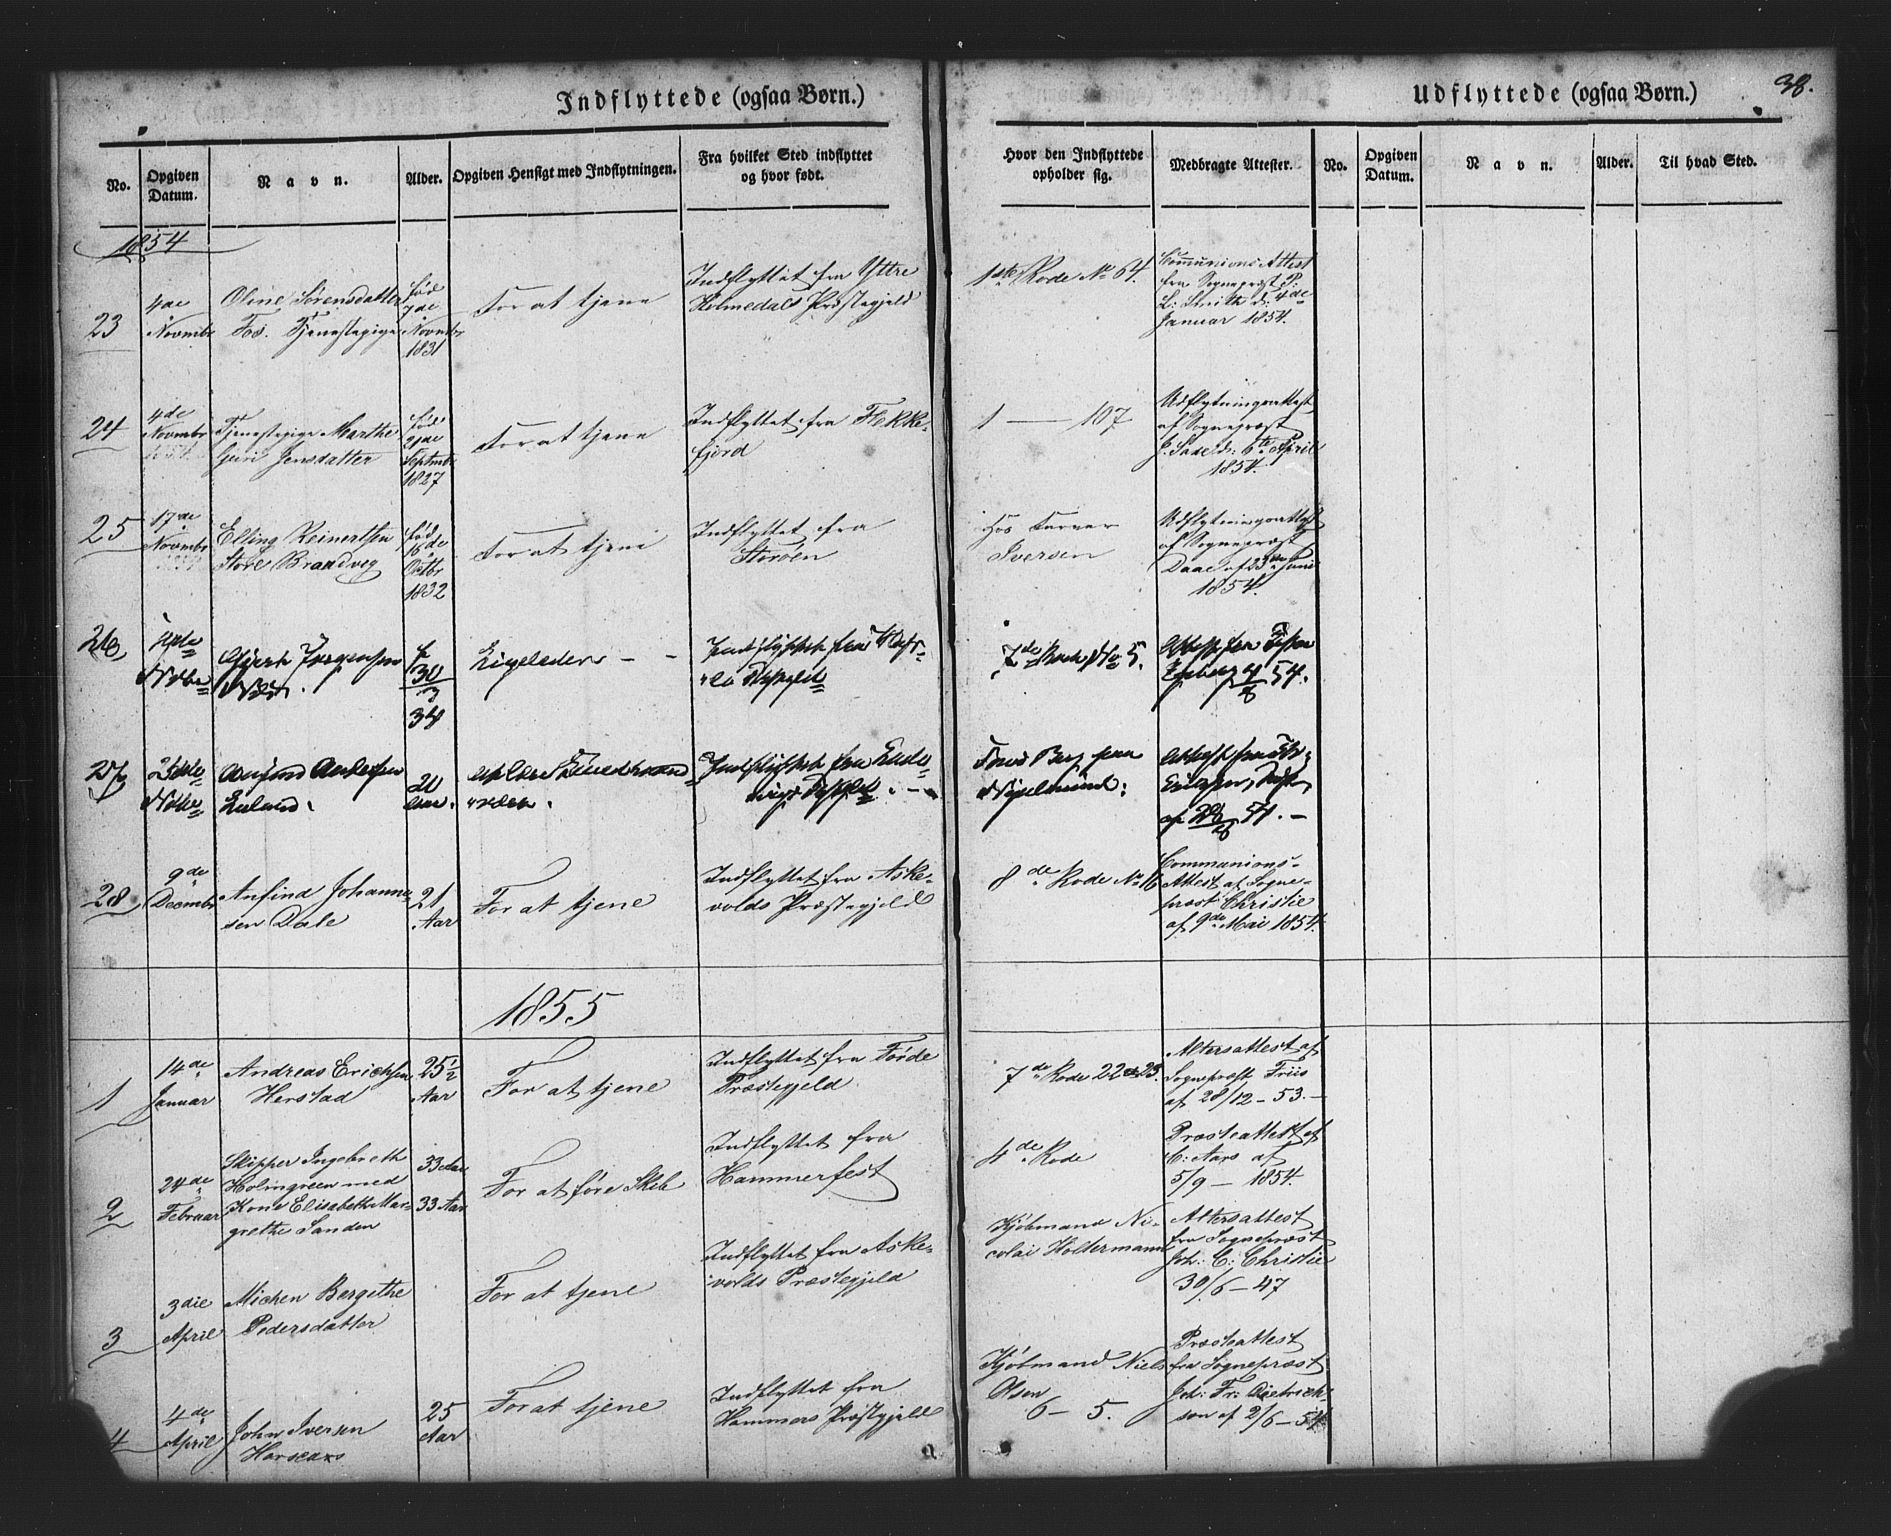 Indflyttede (ogsaa Børn.)
Udflyttede (ogsaa Børn.)
38.
No.
Opgiven Datum.
Navn.
Alder.
Opgiven Hensigt med Indflytningen.
Fra hvilket Sted indflyttet og hvor født.
Hvor den Indflyttede opholder sig.
Medbragte Attester.
No.
Opgiven Datum.
Navn.
Alder.
Til hvad Sted.
1854
23
4de
Novmbr
Oline Sørensdatter
Fos. Tjenestepige
7de
Novmbr
1831
For at tjene
Indflyttet fra Yttre
Holmedals Præstegjeld
1ste Rode No 64.
Communions Attest
fra Sognepræst
4de
Januar 1854.
24
4de
Novmbr
Tjenestepige Marthe
Guri Jensdatter
fød
21de
Septmbr
1827
For at tjene
Indflyttet fra Flekke-
fjord
1 — 107
Udflytningsattest
af Sognepræst
6te April
1854.
25
17de
Novmbr
Elling Reinertsen
Store Brandveg
fød
16de
Octbr
1832
For at tjene
Indflyttet fra
Storøen
Hos Farver
Iversen
Udflytningsattest
af Sognepræst
Daae af 23de Juni
1854.
26
Jørgensen
30
3
34
Ligeleder
Indflyttet fra
7de Rode No 5.
54.
27
Anfind Andersen
20
Aar.
Indflyttet fra
54.
28
9de
Decmbr
Anfind Johanne-
sen Dale
21
Aar
For at tjene
Indflyttet fra Aske-
volds Præstegjeld
8de Rode No 16
Communions-
Attest af Sogne-
præst Christie
af 9de Mai 1854.
1855
1
14de
Januar
Andreas Erichsen
Herstad
25½
Aar
For at tjene
Indflyttet fra Førde
Præstegjeld
7de Rode 22 & 23.
Altersattest af
Sognepræst Friis
af 28/12 – 53.
2
24de
Februar
Skipper Ingebreth
Holmgreen med
Kone Elisabeth Mar-
grethe Sanden
33 Aar
33 Aar
For at føre Skib
Indflyttet fra
Hammerfest
4de Rode
Præsteattest af
C: Aars af
5/9 – 1854
3
3die
April
Michen Bergithe
Pedersdatter
For at tjene
Indflyttet fra Aske-
volds Præstegjeld
Kjøbmand Ni-
colai Holtermann
Altersattest
fra Sognepræst
Joh: C: Christie
30/6 – 47
4
4de
April
John Iversen
25
Aar
For at tjene
Indflyttet fra
Hammers Præstgjeld
Kjøbmand Niels
Olsen
6 – 5.
Præsteattest
fra Sognepræst
Joh: Fr: Dietrich-
son af 2/6 – 54